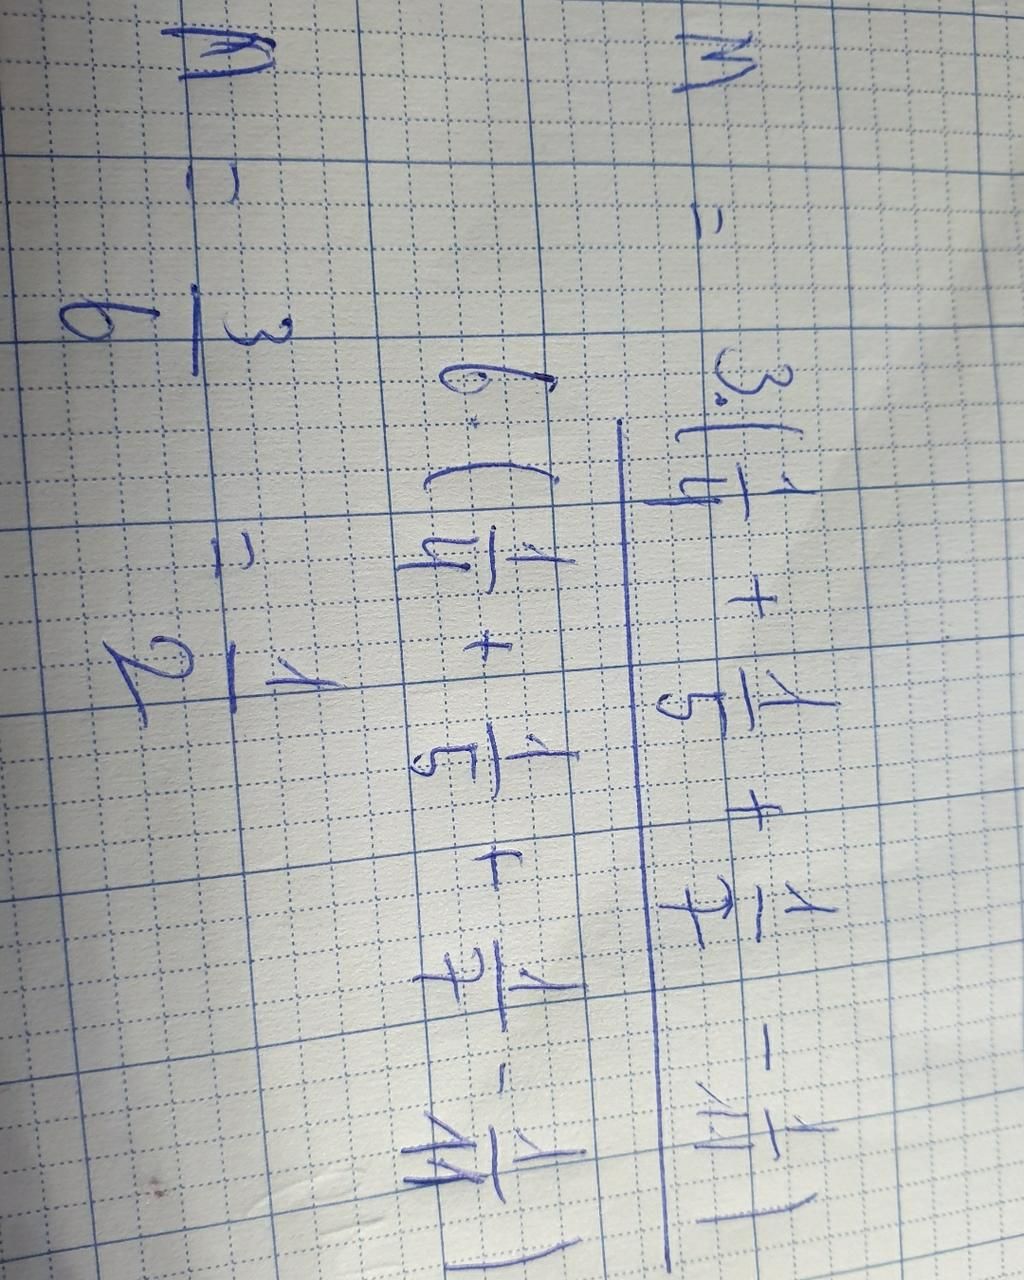 M = 3.(1/4 + 1/5 + 1/7 - 1/11)
6.(1/4 + 1/5 + 1/7 - 1/11)
M = 3/6 = 1/2